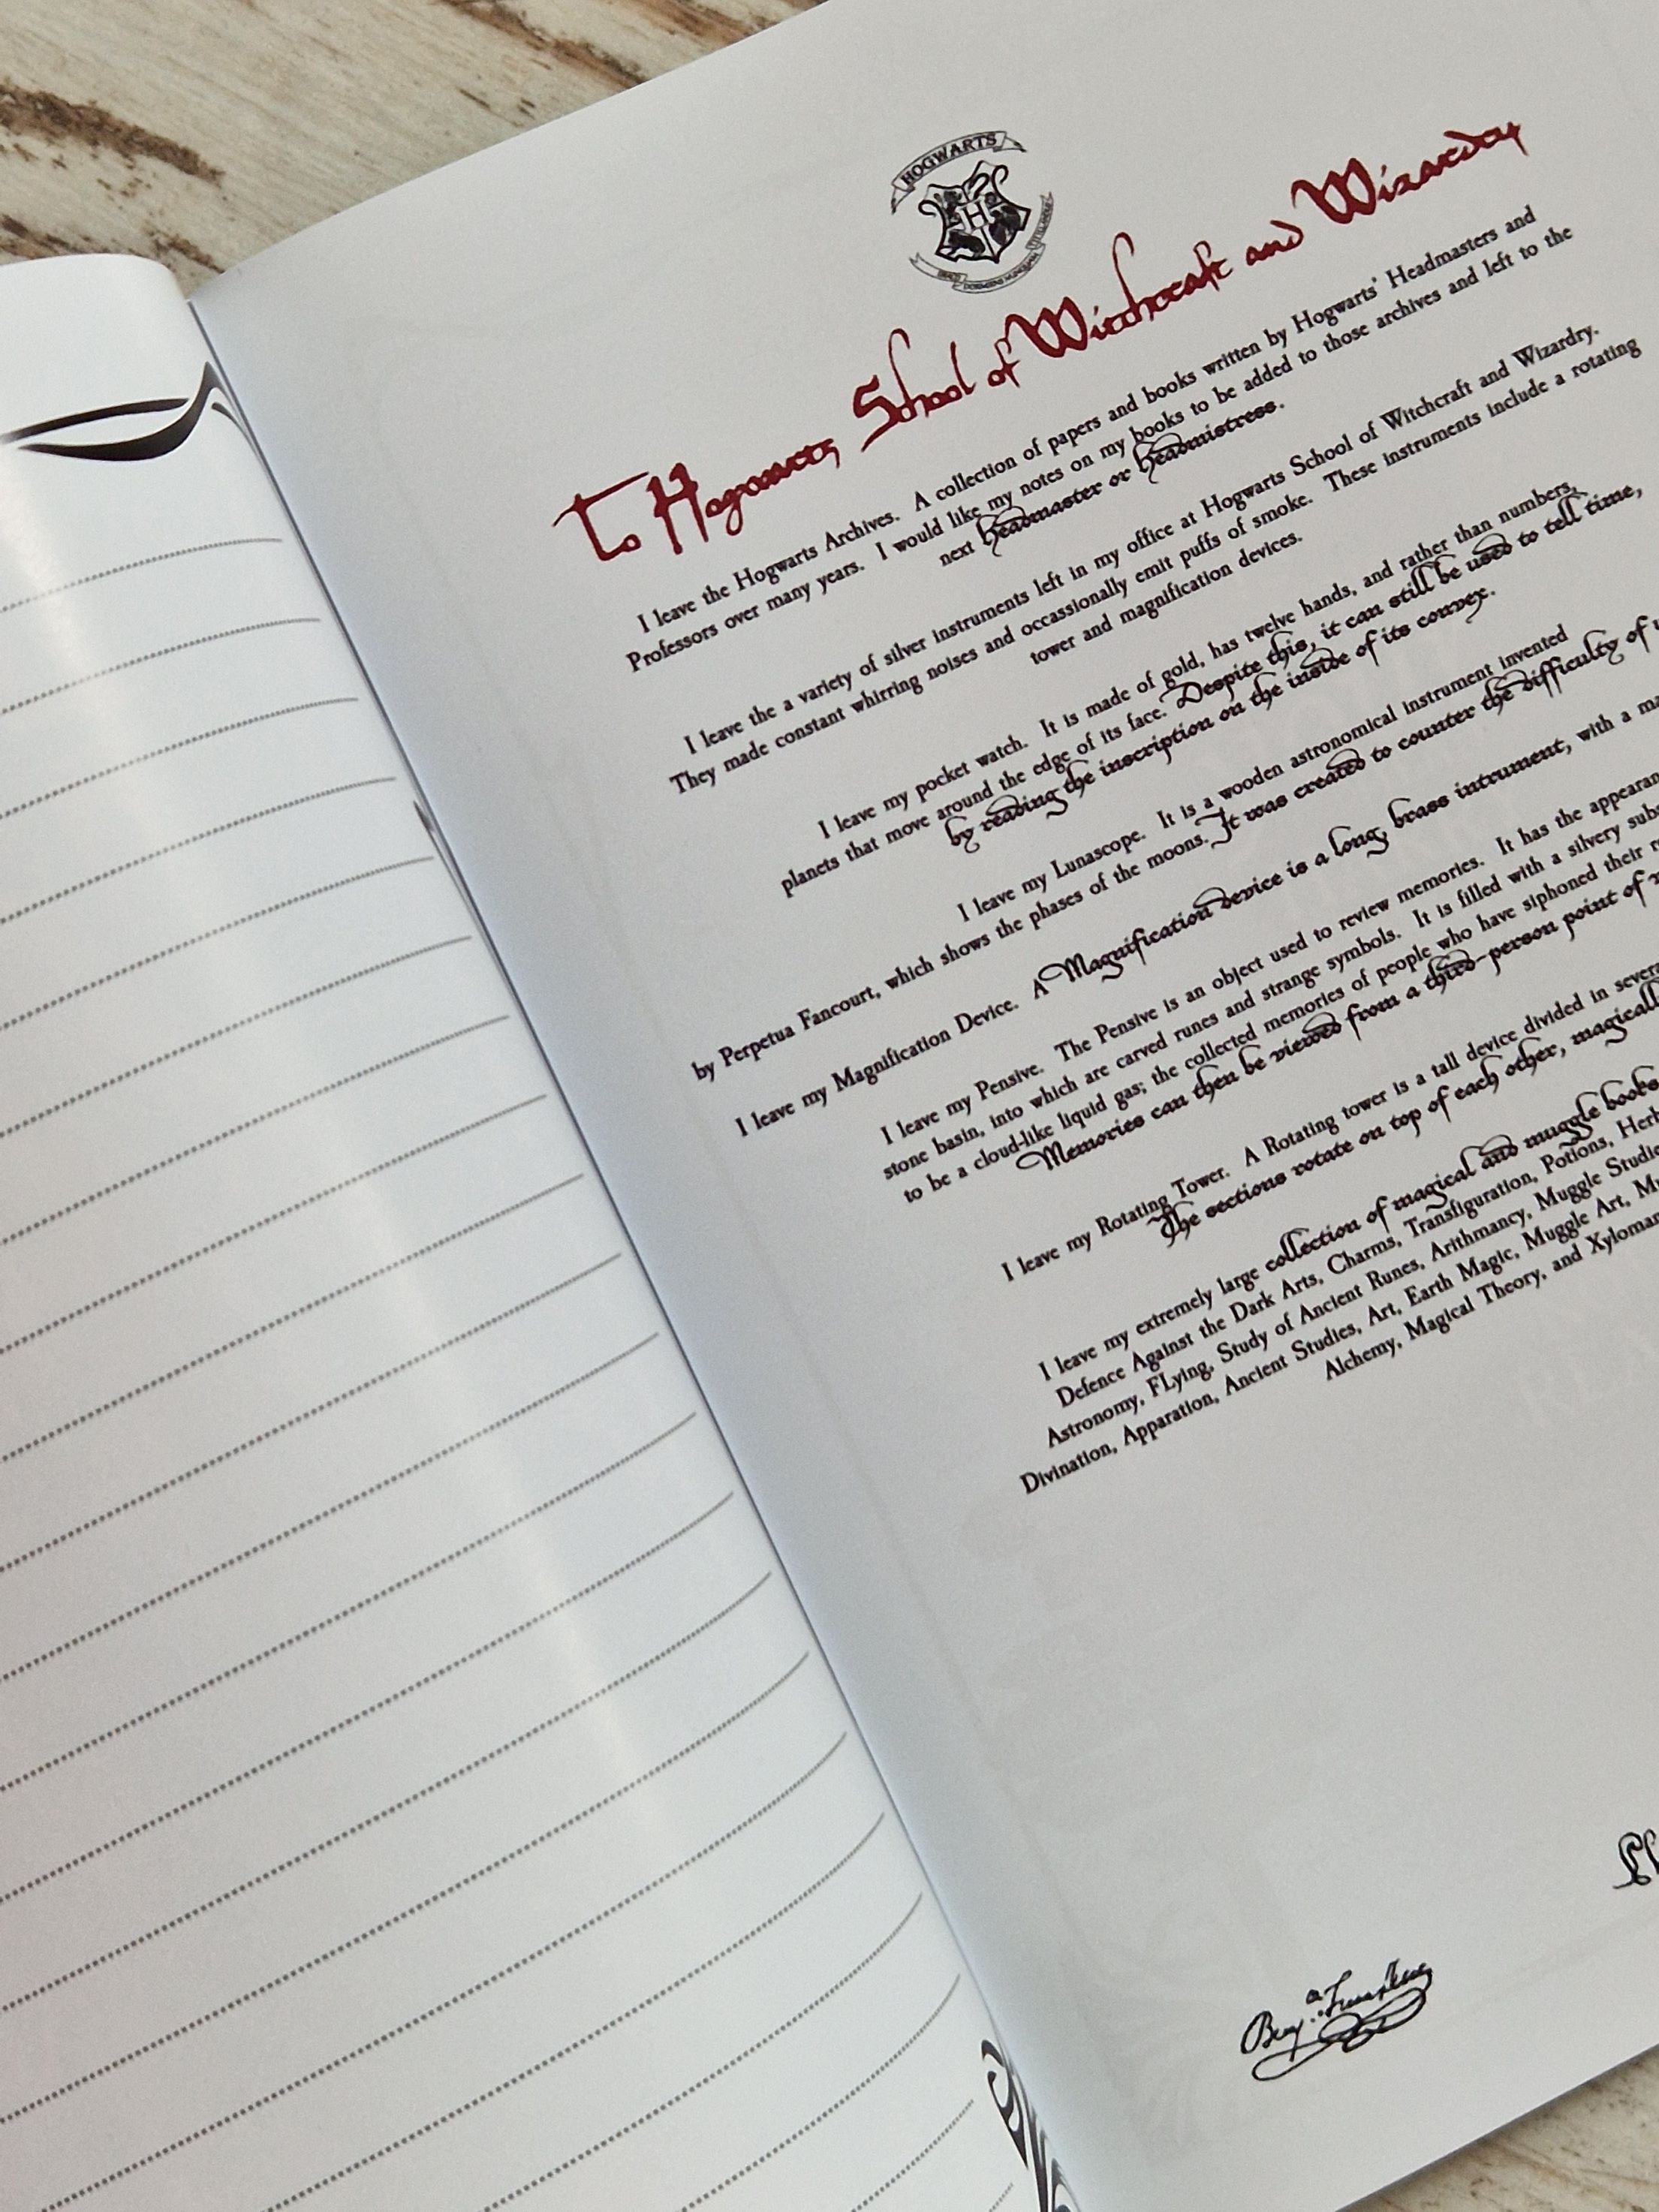 HOGWARTS
H
To Hogwarts School of Witchcraft and Wizardry
I leave the Hogwarts Archives. A collection of papers and books written by Hogwarts' Headmasters and
Professors over many years. I would like my notes on my books to be added to those archives and left to the
next headmaster or headmistress.
I leave the a variety of silver instruments left in my office at Hogwarts School of Witchcraft and Wizardry.
They made constant whirring noises and occassionally emit puffs of smoke. These instruments include a rotating
tower and magnification devices.
I leave my pocket watch. It is made of gold, has twelve hands, and rather than numbers,
planets that move around the edge of its face. Despite this, it can still be used to tell time,
by reading the inscription on the inside of its convex.
I leave my Lunascope. It is a wooden astronomical instrument invented
by Perpetua Fancourt, which shows the phases of the moons. It was created to counter the difficulty of
I leave my Magnification Device. A Magnification device is a long, brass intrument, with a
I leave my Pensive. The Pensive is an object used to review memories. It has the
stone basin, into which are carved runes and strange symbols. It is filled with a silvery
to be a cloud-like liquid gas; the collected memories of people who have siphoned their
Memories can then be viewed from a third-person point of
I leave my Rotating Tower. A Rotating tower is a tall device divided in
The sections rotate on top of each other,
I leave my extremely large collection of magical and muggle books
Defence Against the Dark Arts, Charms, Transfiguration, Potions,
Astronomy, FLying, Study of Ancient Runes, Arithmancy, Muggle
Divination, Apparation, Ancient Studies, Art, Earth Magic, Muggle Art,
Alchemy, Magical Theory, and